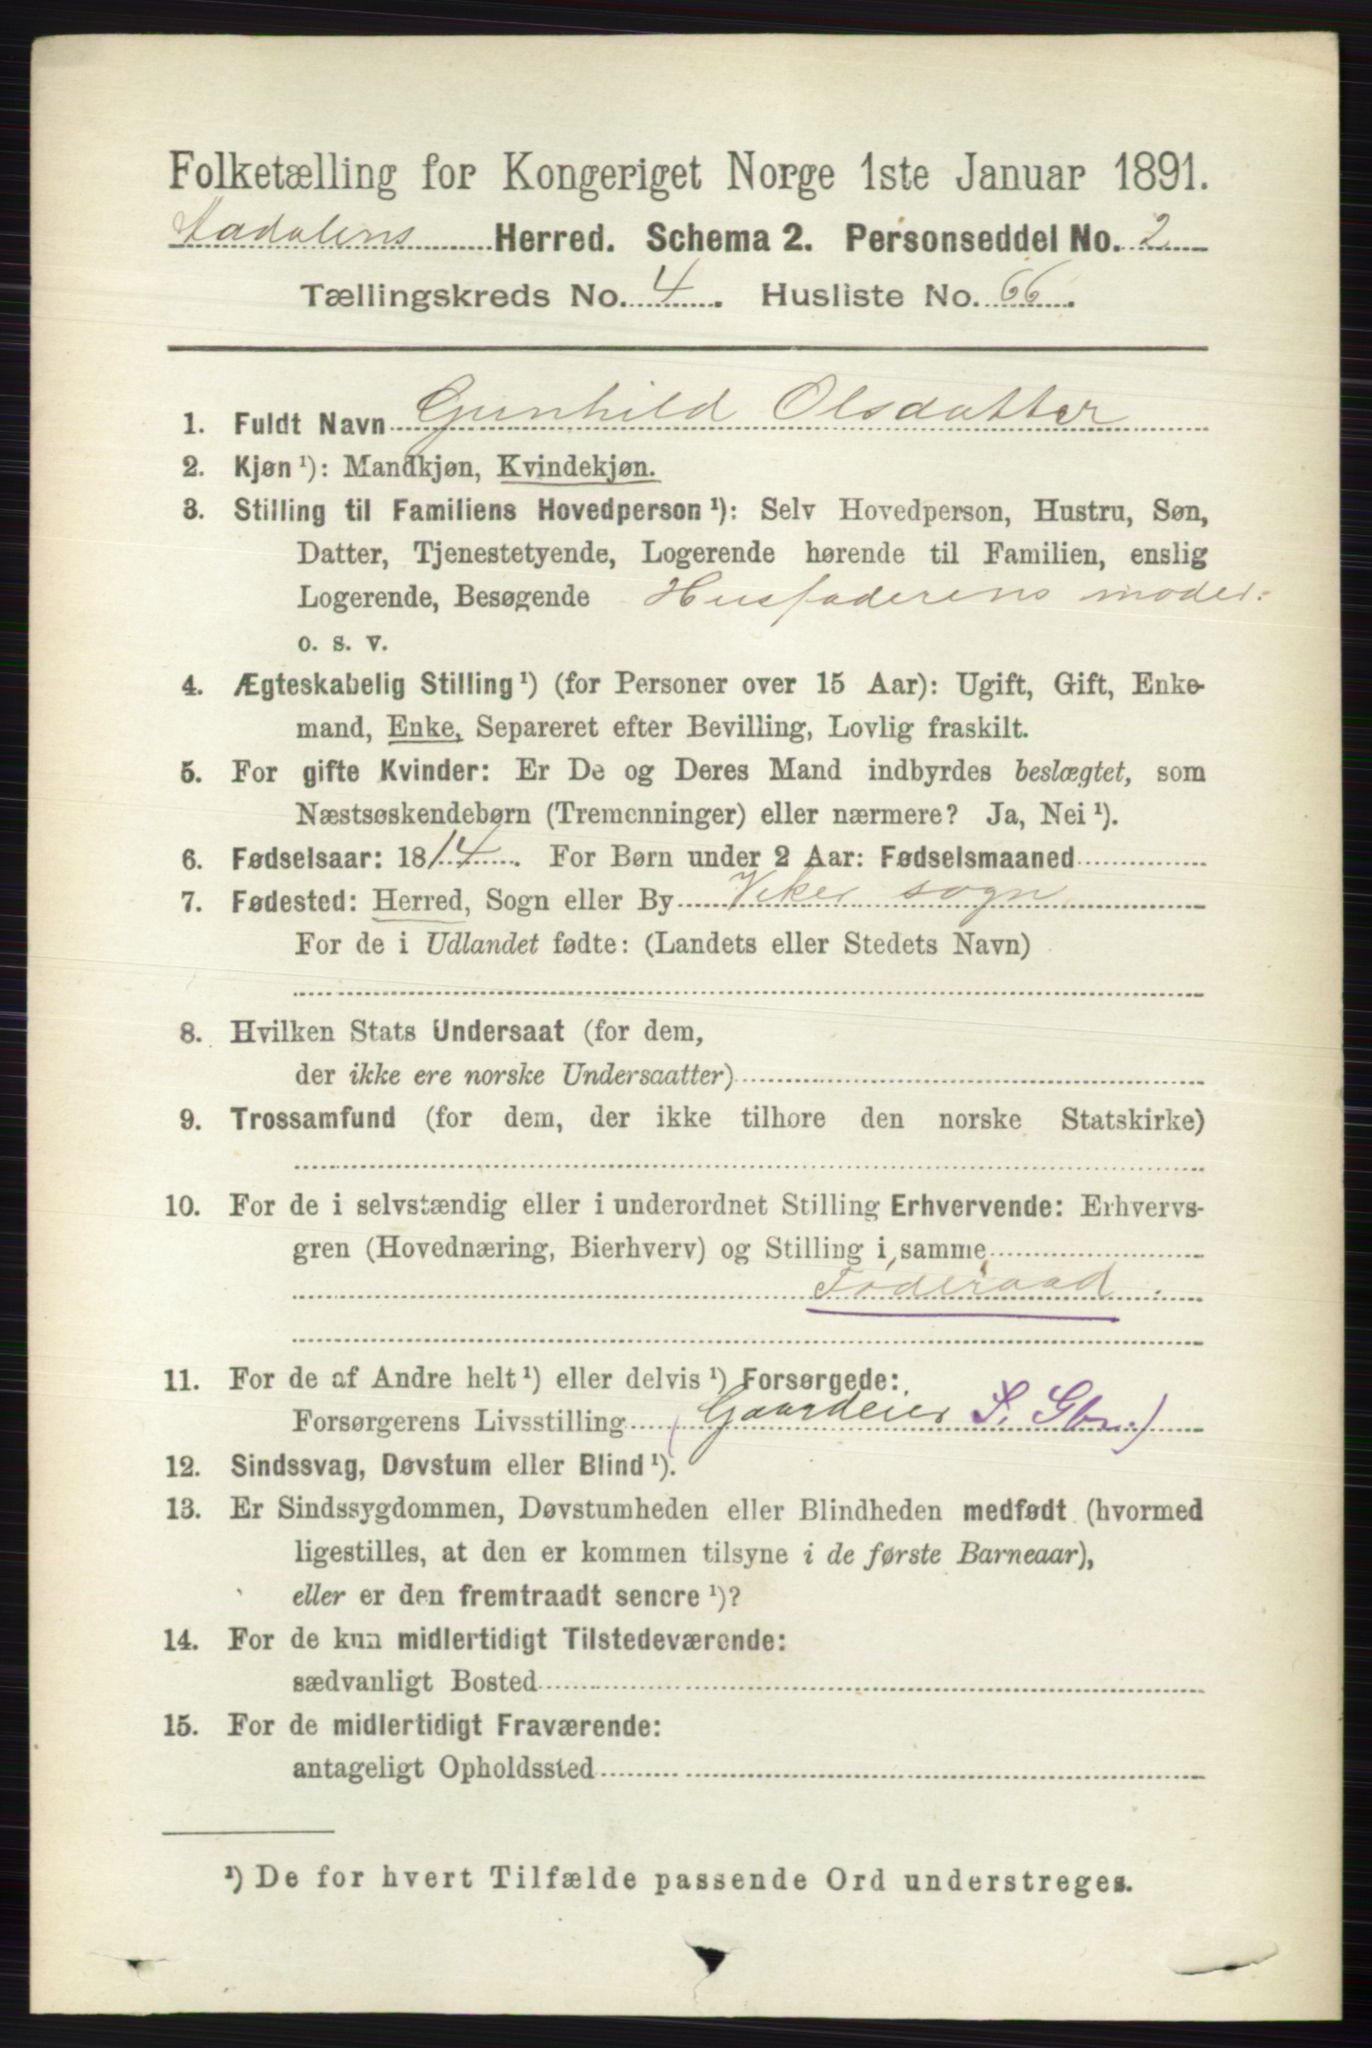 Folketælling for Kongeriget Norge 1ste Januar 1891.
Aadalens Herred. Schema 2. Personseddel No. 2
Tællingskreds No. 4. Husliste No. 66.
1. Fuldt Navn Gunhild Olsdatter
2. Kjøn ¹): Mandkjøn, Kvindekjøn.
3. Stilling til Familiens Hovedperson ¹): Selv Hovedperson, Hustru, Søn,
Datter, Tjenestetyende, Logerende hørende til Familien, enslig
Logerende, Besøgende Husfaderens moder.
o. s. v.
4. Ægteskabelig Stilling ¹) (for Personer over 15 Aar): Ugift, Gift, Enke-
mand, Enke, Separeret efter Bevilling, Lovlig fraskilt.
5. For gifte Kvinder: Er De og Deres Mand indbyrdes beslægtet, som
Næstsøskendebørn (Tremenninger) eller nærmere? Ja, Nei ¹).
6. Fødselsaar: 1814. For Børn under 2 Aar: Fødselsmaaned
7. Fødested: Herred, Sogn eller By Viker sogn
For de i Udlandet fødte: (Landets eller Stedets Navn)
8. Hvilken Stats Undersaat (for dem,
der ikke ere norske Undersaatter)
9. Trossamfund (for dem, der ikke tilhøre den norske Statskirke)
10. For de i selvstændig eller i underordnet Stilling Erhvervende: Erhvervs-
gren (Hovednæring, Bierhverv) og Stilling i samme
Føderaad.
11. For de af Andre helt ¹) eller delvis ¹) Forsørgede:
Forsørgerens Livsstilling (Gaardeier S. Gbr.)
12. Sindssvag, Døvstum eller Blind ¹).
13. Er Sindssygdommen, Døvstumheden eller Blindheden medfødt (hvormed
ligestilles, at den er kommen tilsyne i de første Barneaar),
eller er den fremtraadt senere ¹)?
14. For de kun midlertidigt Tilstedeværende:
sædvanligt Bosted
15. For de midlertidigt Fraværende:
antageligt Opholdssted
¹) De for hvert Tilfælde passende Ord understreges.